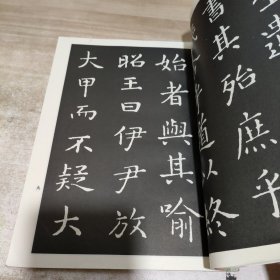 書其殆庶乎
道以終
始者與其喻
昭王曰伊尹放
大甲而不疑大